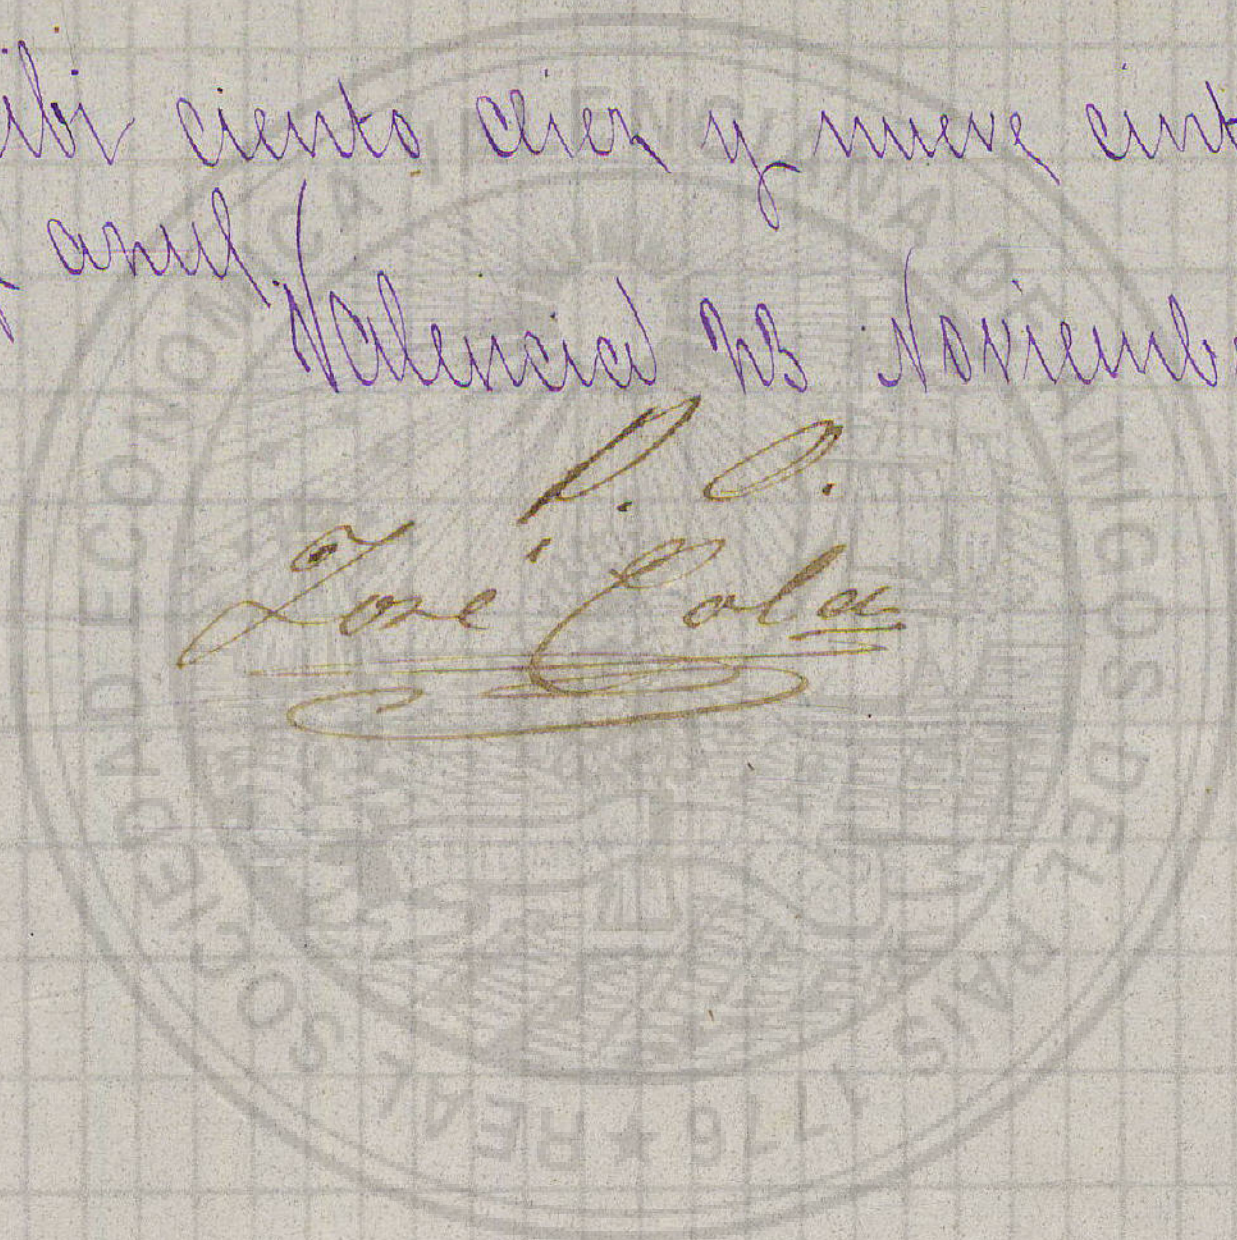 ibi ciento diez y nueve cint
azul
Valencia 23 Noviemb
P. O.
José Cola
REAL SOCIEDAD ECONOMICA VALENCIANA DE AMIGOS DEL PAIS 1776